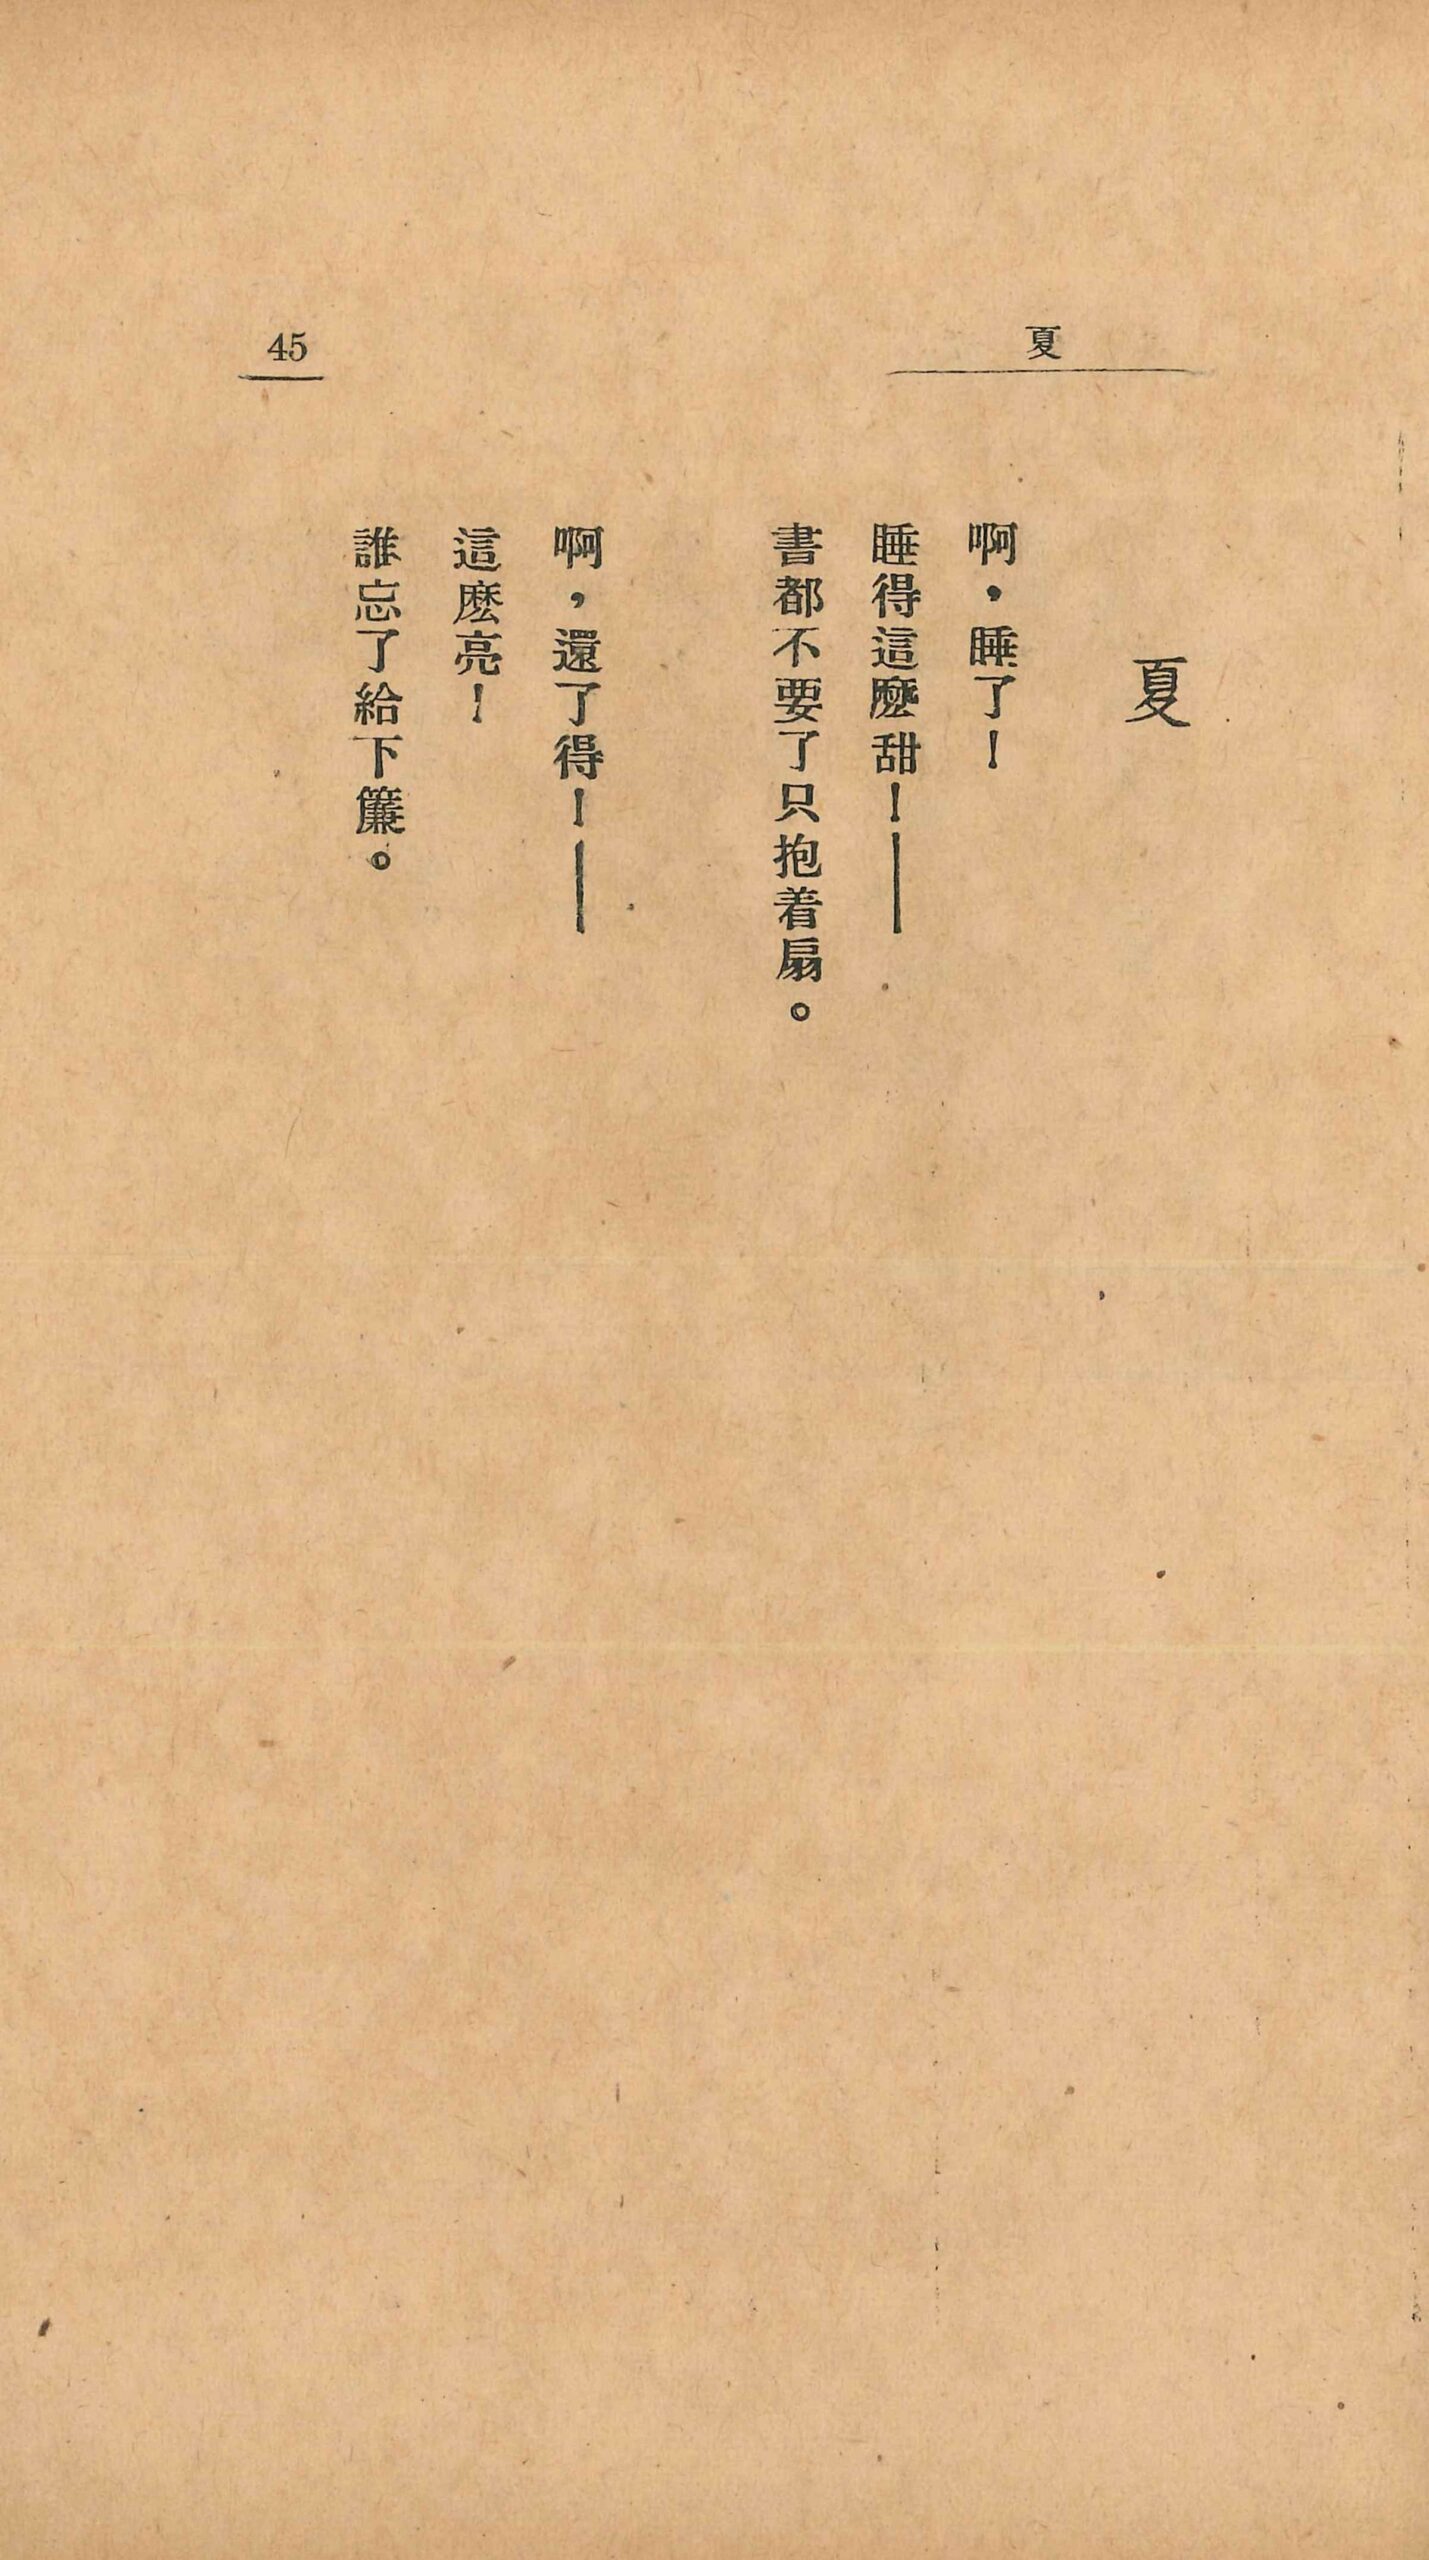 夏
45
夏
啊，睡了！
睡得這麼甜！——
書都不要了只抱着扇。
啊，還了得！——
這麽亮！
誰忘了給下簾。